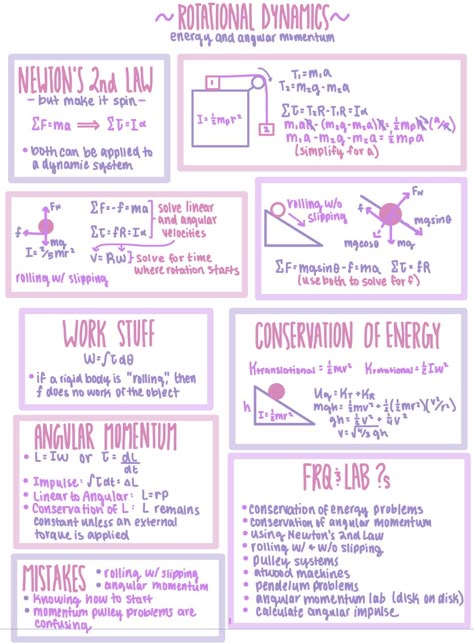 ~ROTATIONAL DYNAMICS~
energy and angular momentum
NEWTON'S 2nd LAW
- but make it spin -
ΣF=ma ⟹ Στ=Iα
• both can be applied to
a dynamic system
1
I=½mpr²
2
T₁=m₁a
T₂=m₂g-m₂a
Στ=T₂R-T₁R=Iα
m₁aR-(m₂g-m₂a)R=½mpR²(a/R)
m₁a-m₂g-m₂a=½mpa
(simplify for a)
FN
f
mg
I=²/₅mr²
rolling w/ slipping
ΣF=-f=ma
Στ=fR=Iα
solve linear
and angular
velocities
v=Rω
solve for time
where rotation starts
rolling w/o
slipping
FN
f
mgsinθ
mgcosθ
mg
ΣF=mgsinθ-f=ma Στ=fR
(use both to solve for f)
WORK STUFF
W=∫τdθ
• if a rigid body is "rolling," then
f does no work on the object
CONSERVATION OF ENERGY
Ktranslational=½mv² Krotational=½Iω²
h
I=½mr²
Ug=KT+KR
mgh=½mv²+½(½mr²)(v²/r²)
gh=½v²+¼v²
v=√4/3 gh
ANGULAR MOMENTUM
• L=Iω or τ=dL/dt
• Impulse: ∫τdt=ΔL
• Linear to Angular: L=rp
• Conservation of L: L remains
constant unless an external
torque is applied
FRQ & LAB ?s
• conservation of energy problems
• conservation of angular momentum
• using Newton's 2nd Law
• rolling w/ + w/o slipping
• pulley systems
• atwood machines
• pendelum problems
• angular momentum lab (disk on disk)
• calculate angular impulse
MISTAKES
• rolling w/ slipping
• angular momentum
• Knowing how to start
• momentum pulley problems are
confusing